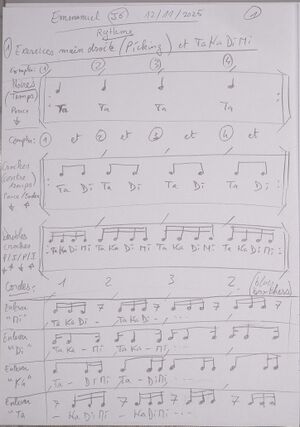 Emmanuel (J6) 12/11/2025 (1)
Rythme
(1) Exercices main droite (Picking) et TaKaDiMi
Compter: (1) (2) (3) (4)
Noires
(Temps) Ta Ta Ta Ta
Pouce
Compter: (1) et (2) et (3) et (4) et
Croches
(contre Ta Di Ta Di Ta Di Ta Di
temps)
Pouce/Index
Doubles
croches TaKaDi Mi TaKaDi Mi TaKaDi Mi TaKaDi Mi
P/I/P/I
Cordes: 1 2 3 2
Enlever
"Mi" TaKaDi - TaKaDi -
Enlever
"Di" TaKa - Mi TaKa - Mi
Enlever
"Ka" Ta - DiMi Ta - DiMi
Enlever
"Ta" - KaDiMi - KaDiMi